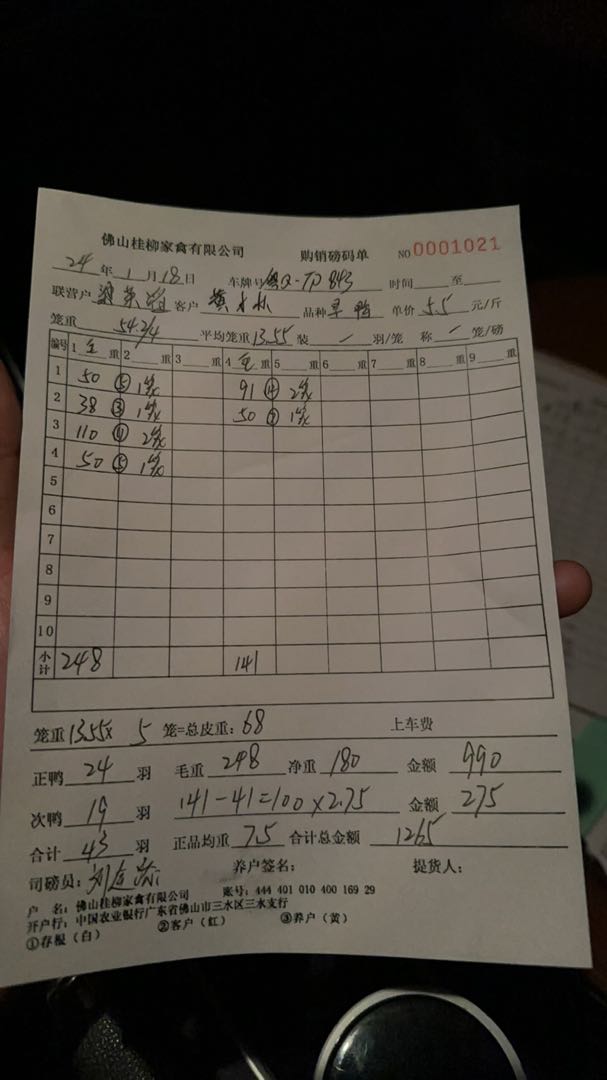 佛山桂柳家禽有限公司 购销磅码单 NO 0001021
24年1月18日 车牌号粤Q-TD843 时间 至
联营户 客户 品种 鸭 单价5.5元/斤
笼重54.2/4 平均笼重13.55 装 — 羽/笼 称 — 笼/磅
编号 1 重 2 重 3 重 4 重 5 重 6 重 7 重 8 重 9 重
1 50 ⑤ 1 91 2
2 38 ③ 1 50 1
3 110 ④ 2
4 50 ⑤ 1
5
6
7
8
9
10
小计 248 141
笼重13.55× 5 笼=总皮重:68 上车费
正鸭24羽 毛重248 净重180 金额990
次鸭19羽 141-41=100×2.75 金额275
合计43羽 正品均重7.5 合计总金额1265
司磅员: 刘 养户签名: 提货人:
户 名:佛山桂柳家禽有限公司 账号:444 401 010 400 169 29
开户行:中国农业银行广东省佛山市三水区三水支行
①存根(白) ②客户(红) ③养户(黄)